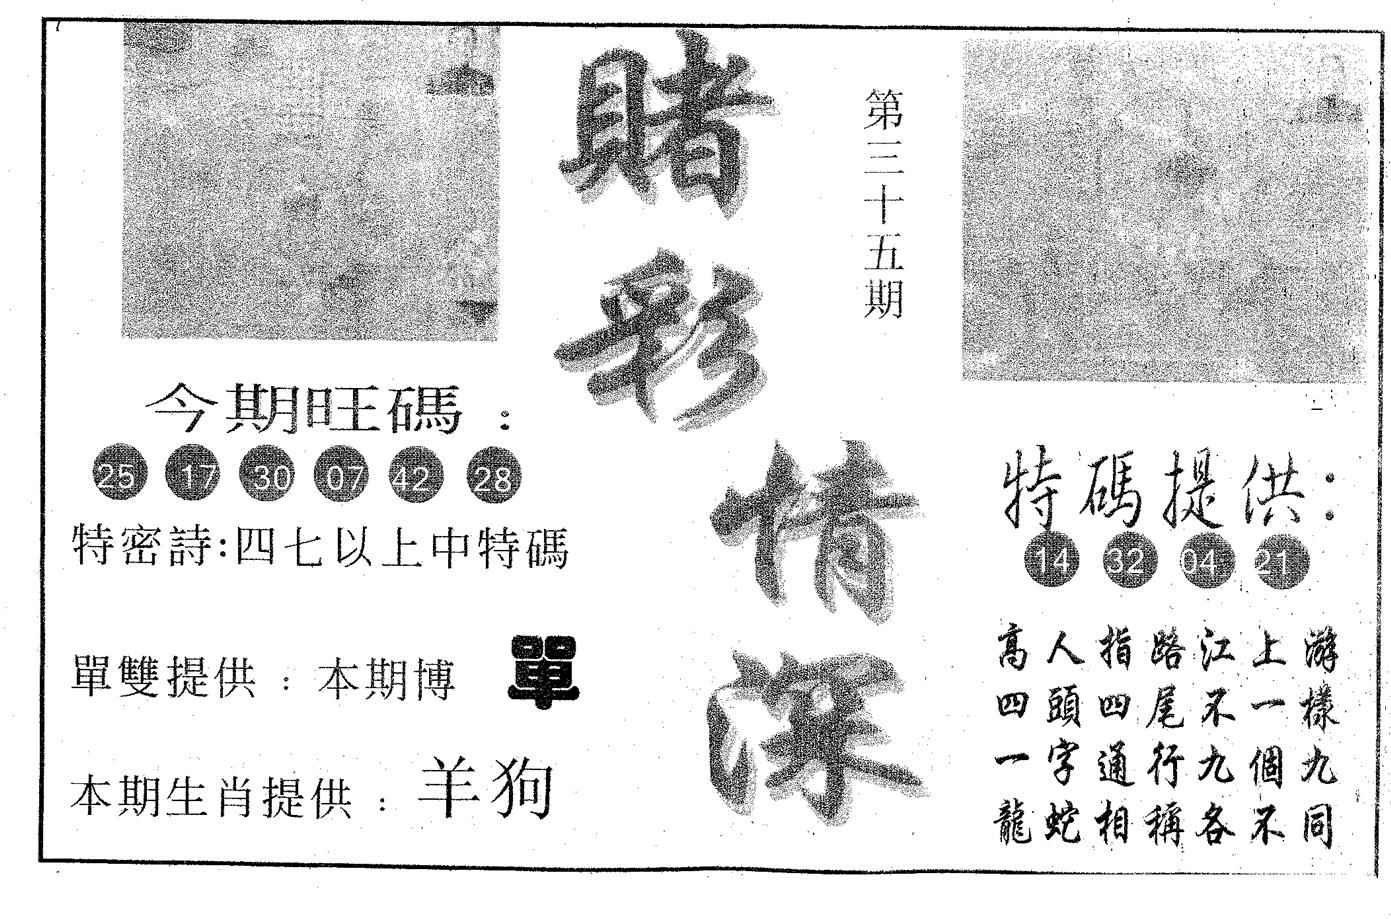 賭彩情深
第三十五期
今期旺碼：
25 17 30 07 42 28
特密詩:四七以上中特碼
單雙提供：本期博 單
本期生肖提供：羊狗
特碼提供：
14 32 04 21
高人指路江上游
四頭四尾不一樣
一字通行九個九
龍蛇相稱各不同